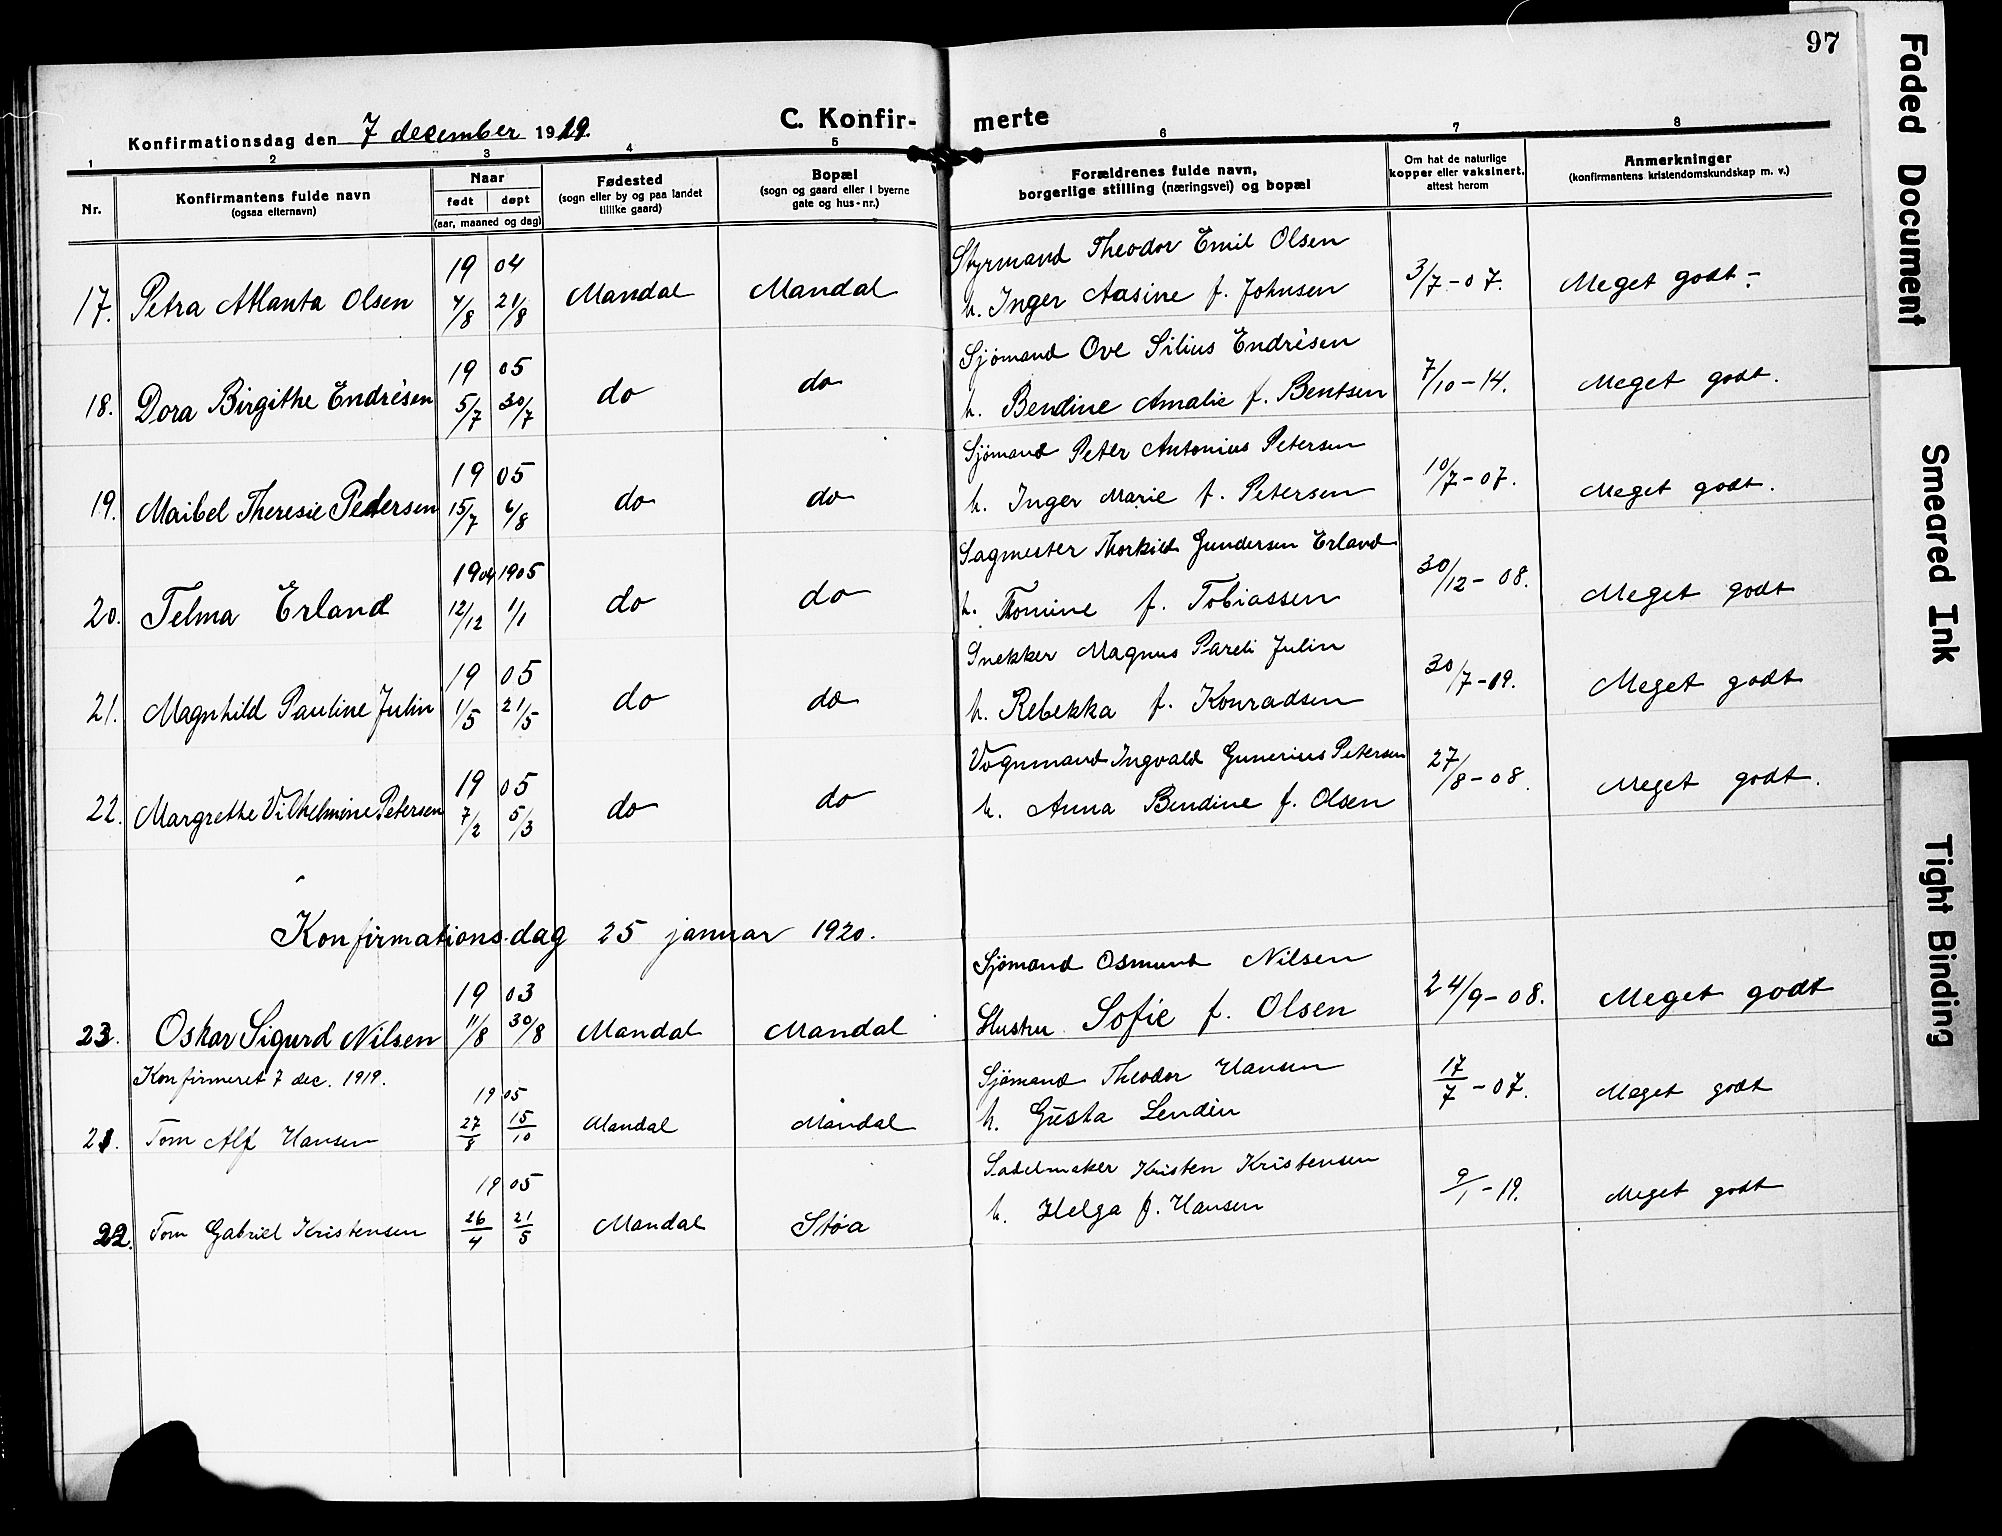 97
Faded Document
Smeared Ink
Tight Binding
Konfirmationsdag den 7 december 1919.
C. Konfir-
merte
1 2 3 4 5 6 7 8
Nr.
Konfirmantens fulde navn
(ogsaa efternavn)
Naar
født døpt
(aar, maaned og dag)
Fødested
(sogn eller by og paa landet
tillike gaard)
Bopæl
(sogn og gaard eller i byerne
gate og hus-nr.)
Forældrenes fulde navn,
borgerlige stilling (næringsvei) og bopæl
Om hat de naturlige
kopper eller vaksinert,
attest herom
Anmerkninger
(konfirmantens kristendomskundskap m. v.)
19 04 Styrmand Theodor Emil Olsen
17. Petra Atlanta Olsen 7/8 21/8 Mandal Mandal h. Inger Aasine f. Johnsen 3/7-07. Meget godt.
19 05 Sjømand Ove Silius Endrésen
18. Dora Birgithe Endrésen 5/7 30/7 do do h. Bendine Amalie f. Bentsen 7/10-14. Meget godt.
19 05 Sjømand Peter Antonius Petersen
19. Maibel Theresie Petersen 15/7 6/8 do do h. Inger Marie f. Petersen 10/7-07. Meget godt.
1904 1905 Sagmester Thorkild Gundersen Erland
20. Telma Erland 12/12 1/1 do do h. Tomine f. Tobiassen 30/12-08. Meget godt
19 05 Snekker Magnus Pareli Julin
21. Magnhild Pauline Julin 1/5 21/5 do do h. Rebekka f. Konradsen 30/7-19. Meget godt
19 05 Vognmand Ingvald Gunerius Petersen
22. Margrethe Vilhelmine Petersen 7/2 5/3 do do h. Anna Bendine f. Olsen 27/8-08. Meget godt.
Konfirmationsdag 25 januar 1920.
19 03 Sjømand Osmund Nilsen
23. Oskar Sigurd Nilsen 11/8 30/8 Mandal Mandal Hustru Sofie f. Olsen 24/9-08. Meget godt
Konfirmeret 7 dec. 1919.
19 05 Sjømand Theodor Hansen
21. Tom Alf Hansen 27/8 15/10 Mandal Mandal h. Gusta Lendin 17/7-07. Meget godt
19 05 Sadelmaker Kristen Kristensen
22. Tom Gabriel Kristensen 26/4 21/5 Mandal Støa h. Helga f. Hansen 9/1-19. Meget godt